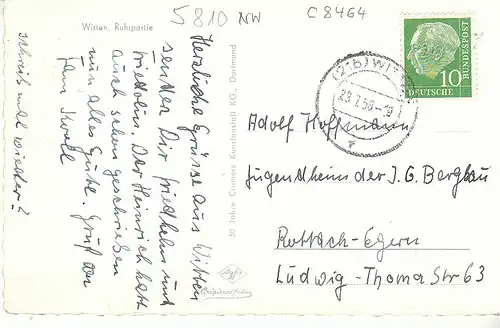 5810 NW
C 8464
Witten, Ruhrpartie
Herzliche Grüsse aus Witten
sendet Dir Friedhelm und
Friedlein. Der Heinrich hatt
auch schon geschrieben
nun alles Gute. Gruß an
Fam.
schreib mal wieder?
50 Jahre Cramers Kunstanstalt KG., Dortmund
Agfa
Originalfoto
(21b) WITTEN
23.7.58.-19
DEUTSCHE
BUNDESPOST
10
Adolf Hoffmann
Jugendheim der J.G. Bergbau
Rottach-Egern
Ludwig-Thoma Str 63